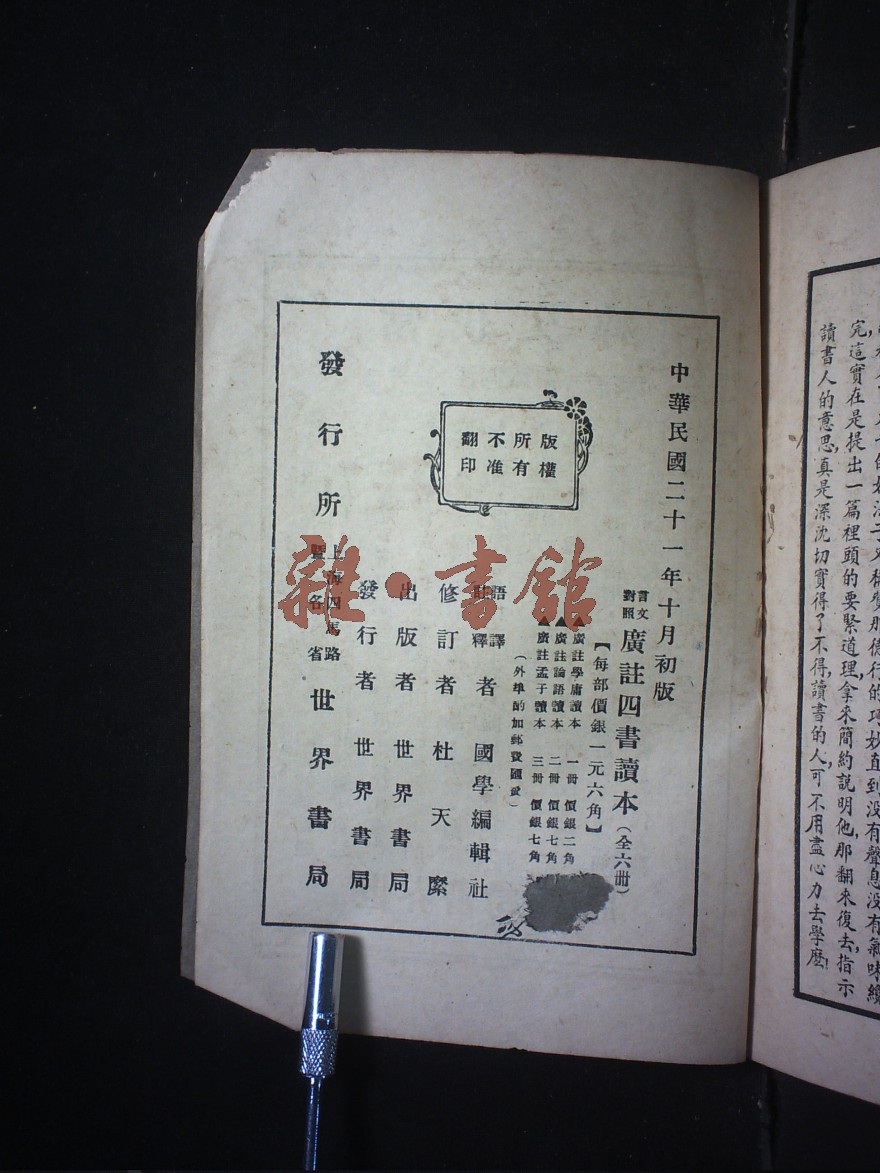 完這實在是提出一篇裡頭的要緊道理,拿來簡約説明他,那翻來復去,指示
讀書人的意思,真是深沈切實得了不得,讀書的人,可不用盡心力去學麽!
中華民國二十一年十月初版
言文
對照
廣註四書讀本(全六冊)
【每部價銀一元六角】
▲廣註學庸讀本 一冊 價銀二角
▲廣註論語讀本 二冊 價銀七角
▲廣註孟子讀本 三冊 價銀七角
(外埠酌加郵費匯費)
版權
所有
不准
翻印
語譯
註釋
者 國學編輯社
修訂者 杜天縻
出版者 世界書局
發行者 世界書局
發行所
上海四馬路
暨各省
世界書局
雜·書館